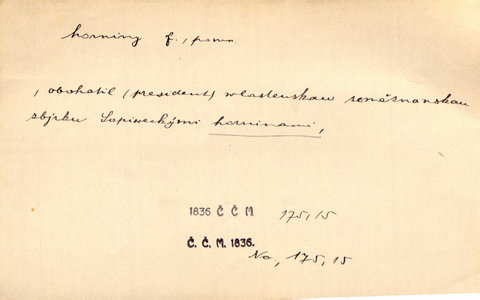 hornina f., pomn
, obohatil (president) wlastenskau seměžnanskau
zbjrku Lapiweckými horninami,
1836 Č Č M 175/15
Č. Č. M. 1836.
No, 175, 15